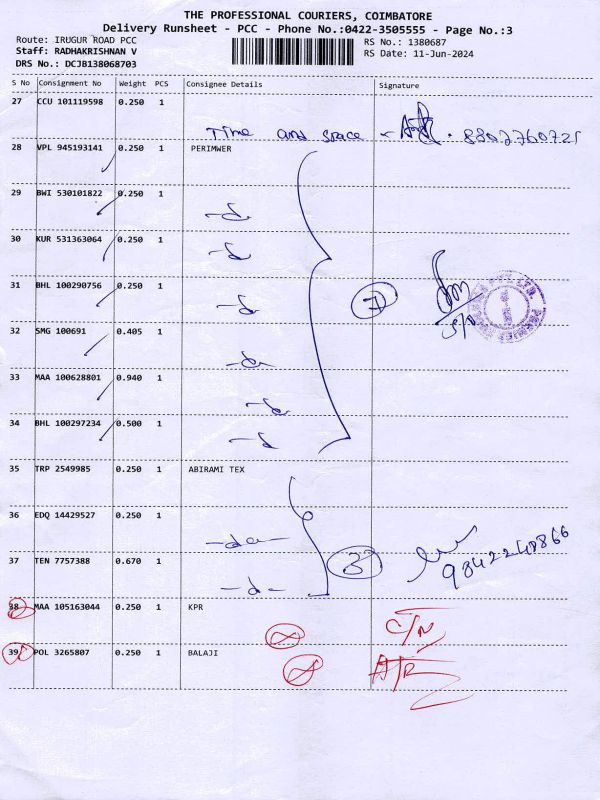 THE PROFESSIONAL COURIERS, COIMBATORE
Delivery Runsheet - PCC - Phone No.:0422-3505555 - Page No.:3
Route: IRUGUR ROAD PCC
Staff: RADHAKRISHNAN V
DRS No.: DCJB138068703
RS No.: 1380687
RS Date: 11-Jun-2024
S No Consignment No Weight PCS Consignee Details Signature
27 CCU 101119598 0.250 1
Time and space
28 VPL 945193141 0.250 1 PERIMWER
29 BWI 530101822 0.250 1 -do-
30 KUR 531363064 0.250 1 -do-
31 BHL 100290756 0.250 1 -do- 7
32 SMG 100691 0.405 1 -do-
33 MAA 100628801 0.940 1 -do-
34 BHL 100297234 0.500 1 -do-
35 TRP 2549985 0.250 1 ABIRAMI TEX
36 EDQ 14429527 0.250 1 -do-
37 TEN 7757388 0.670 1 -do- 3 9842248866
38 MAA 105163044 0.250 1 KPR C/N
39 POL 3265807 0.250 1 BALAJI A/R